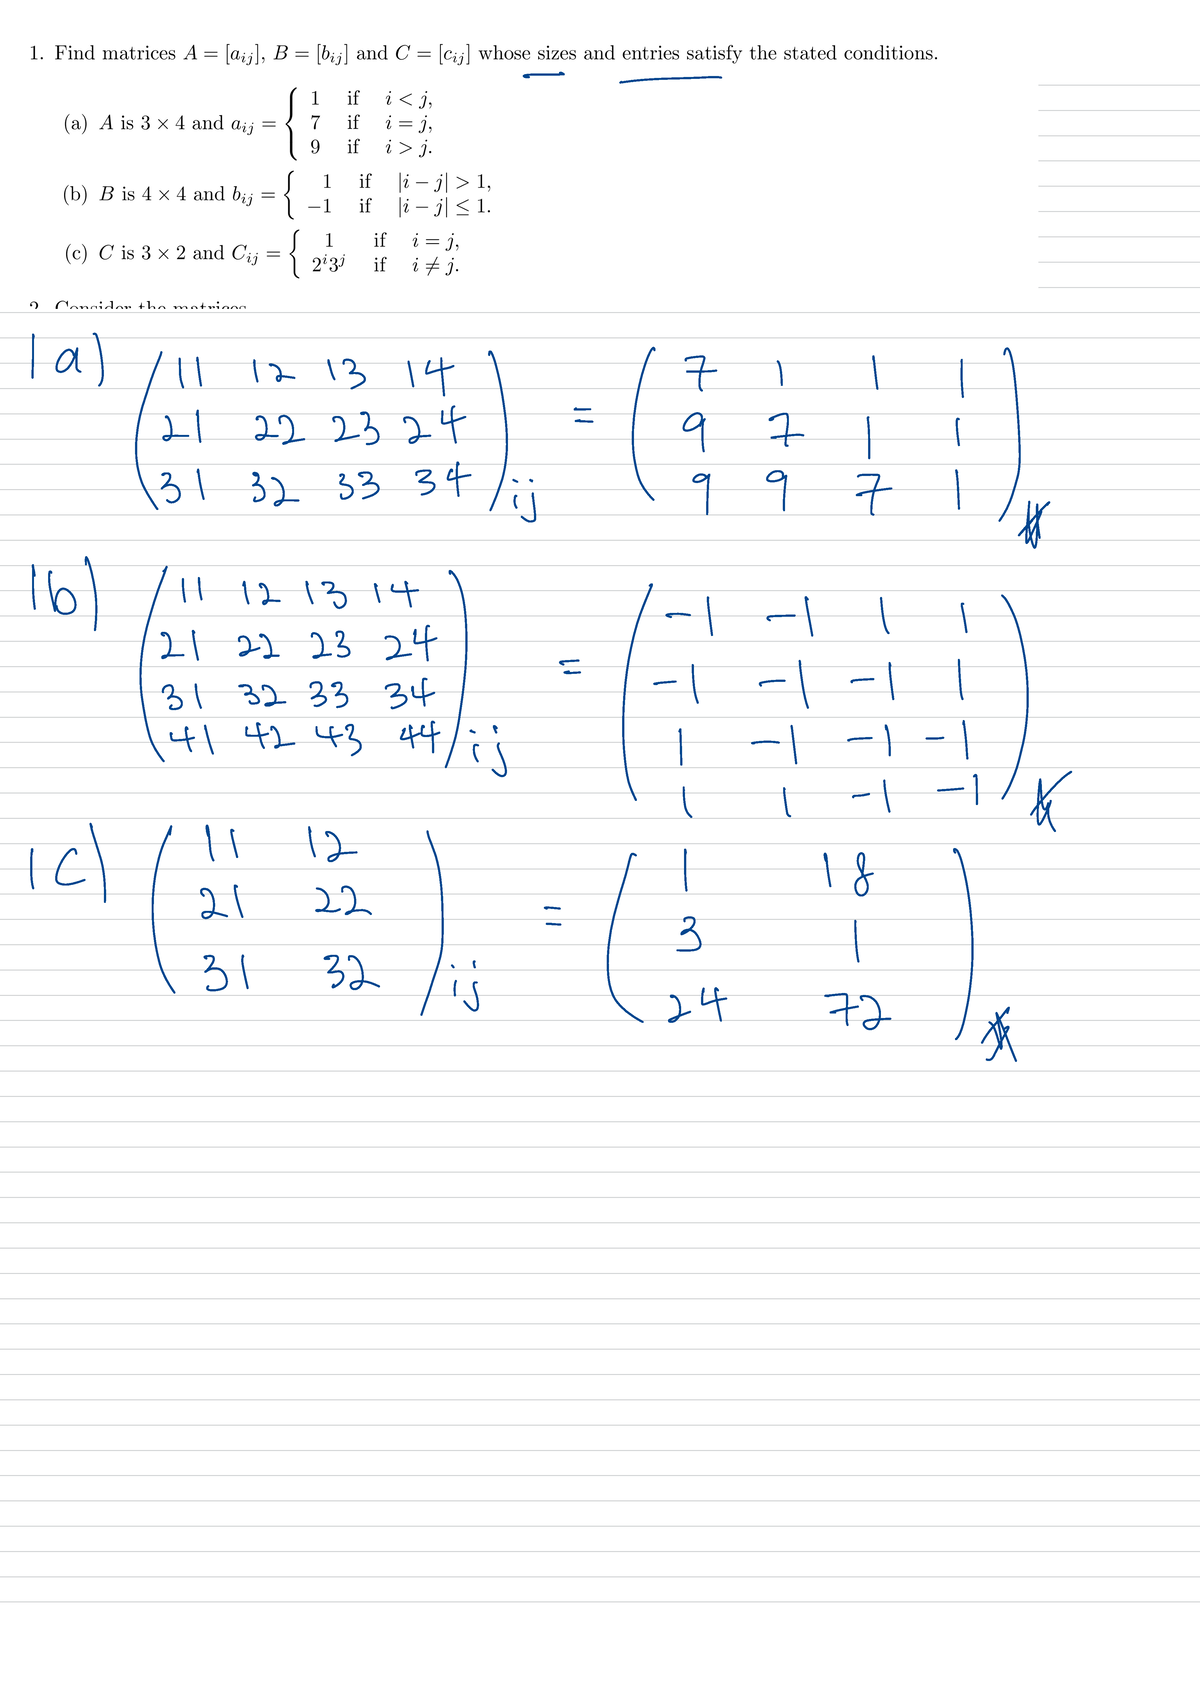 1. Find matrices A = [aij], B = [bij] and C = [cij] whose sizes and entries satisfy the stated conditions.
(a) A is 3 × 4 and aij = { 1 if i < j,
7 if i = j,
9 if i > j.
(b) B is 4 × 4 and bij = { 1 if |i − j| > 1,
−1 if |i − j| ≤ 1.
(c) C is 3 × 2 and Cij = { 1 if i = j,
2^i3^j if i ≠ j.
2. Consider the matrices
1a)
( 11 12 13 14
21 22 23 24
31 32 33 34 )ij
=
( 7 1 1 1
9 7 1 1
9 9 7 1 )
1b)
( 11 12 13 14
21 22 23 24
31 32 33 34
41 42 43 44 )ij
=
( -1 -1 1 1
-1 -1 -1 1
1 -1 -1 -1
1 1 -1 -1 )
1c)
( 11 12
21 22
31 32 )ij
=
( 1 18
3 1
24 72 )